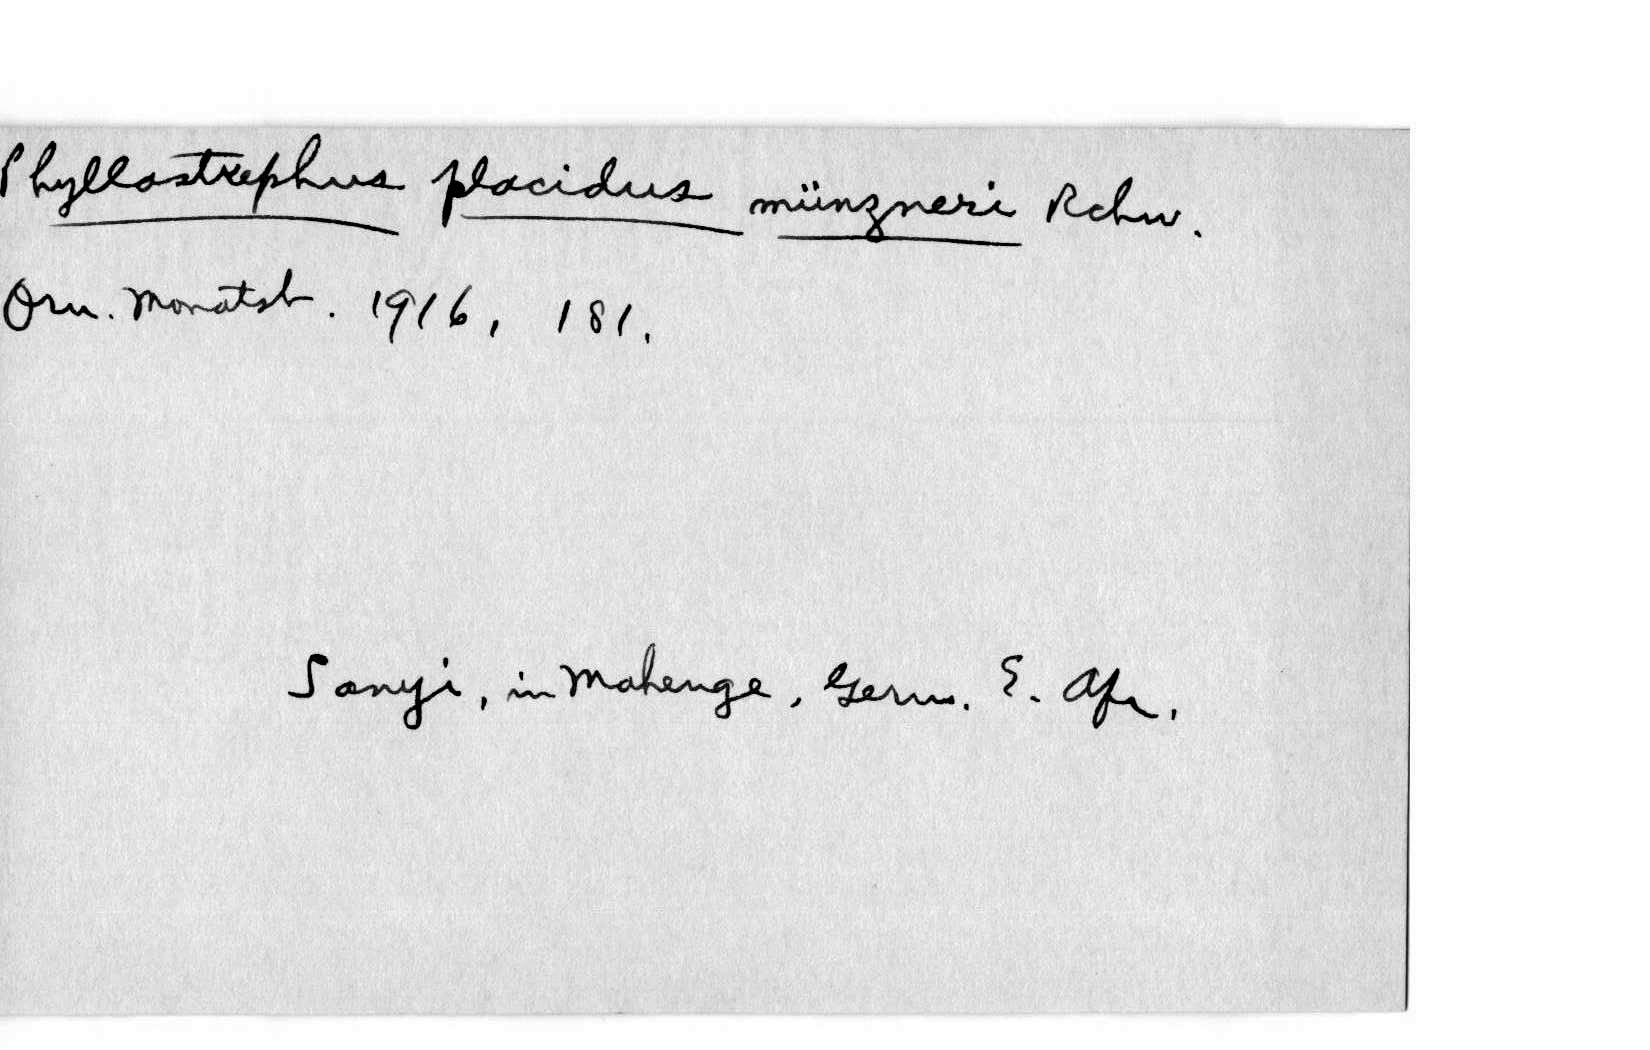 Phyllastrephus placidus münzneri Rchw.
Orn. Monatsb. 1916, 181.
Sanyi, in Mahenge, Germ. E. Afr.